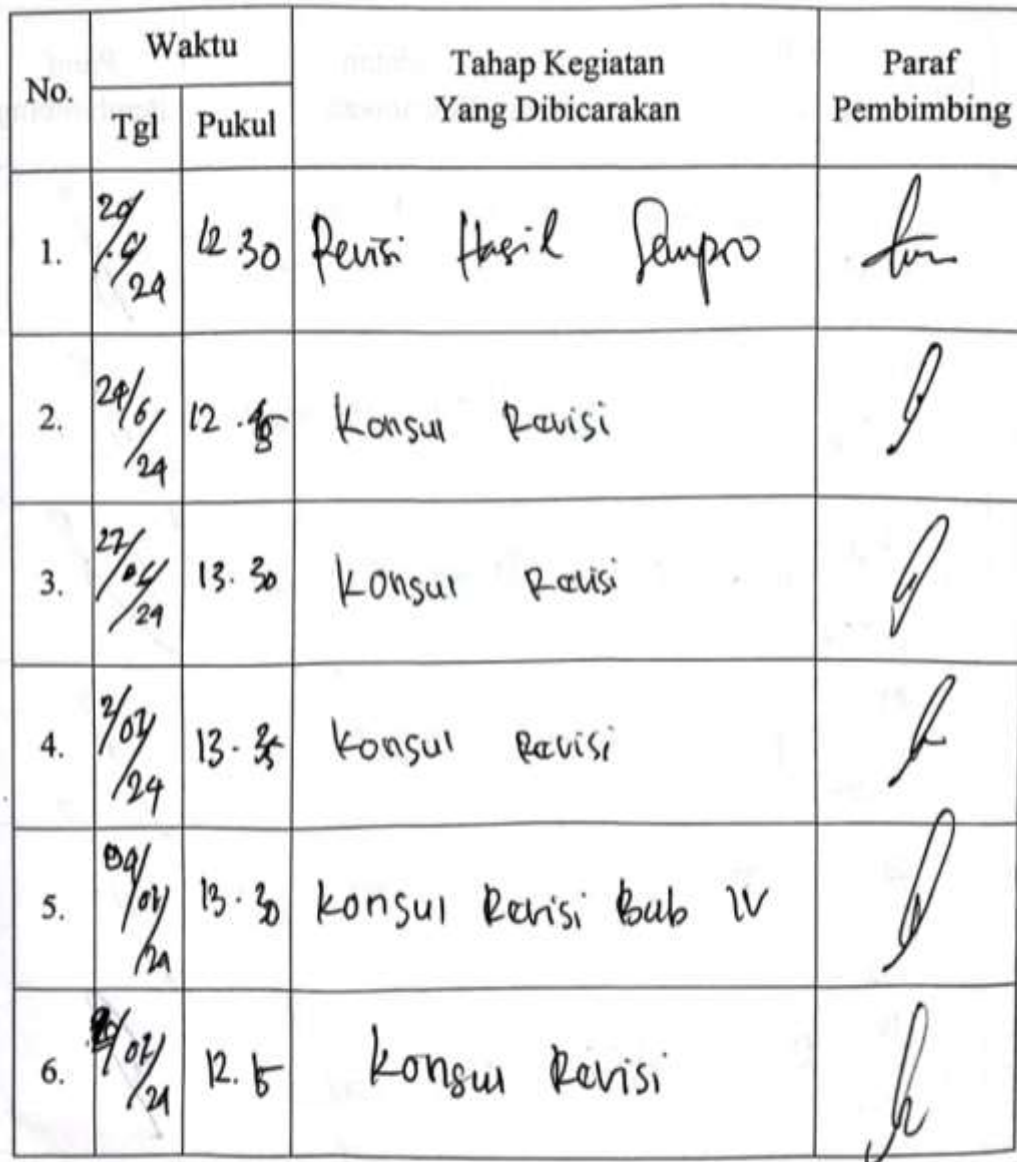 No. Waktu Tahap Kegiatan Yang Dibicarakan Paraf Pembimbing
Tgl Pukul
1. 12.30 Revisi Hasil Sempro
2. 24/6/24 12. Konsul Revisi
3. 27/06/24 13.30 Konsul Revisi
4. 2/07/24 13.35 Konsul Revisi
5. 13.30 Konsul Revisi Bab IV
6. Konsul Revisi